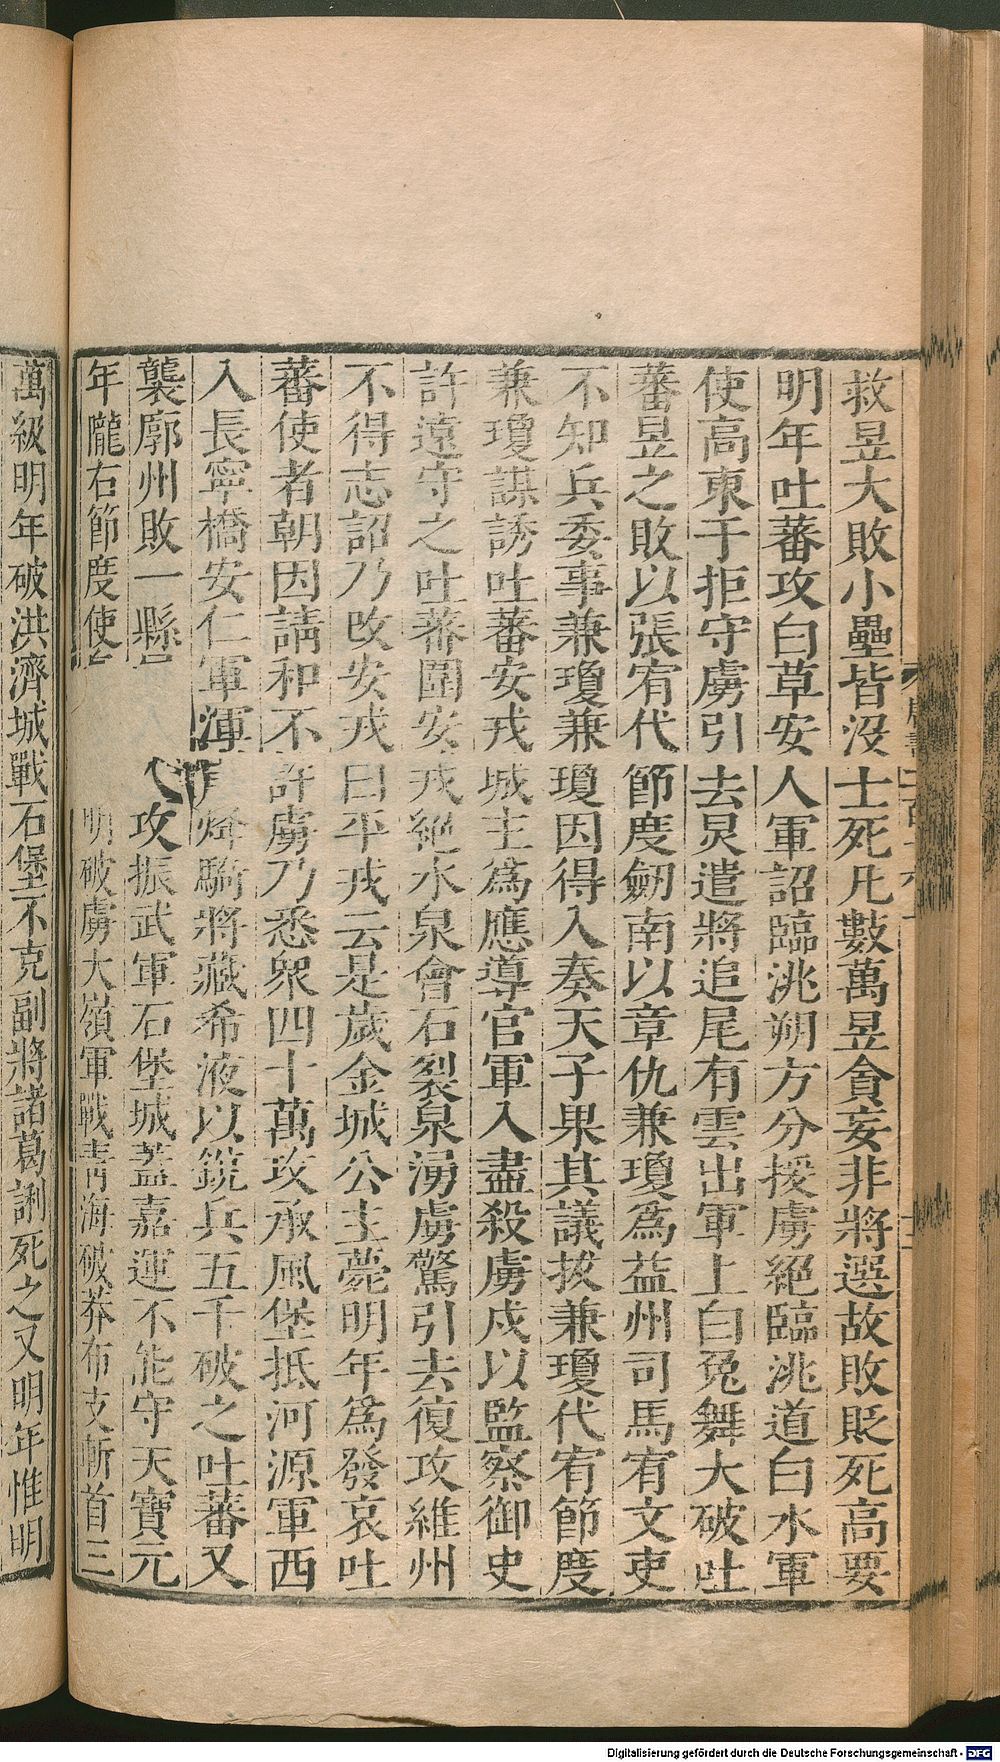 救昱大敗小壘皆没士死凡數萬昱貪妄非將選故敗貶死高要
明年吐蕃攻白草安人軍詔臨洮朔方分援虜絕臨洮道白水軍
使高柬于拒守虜引去炅遣將追尾有雲出軍上白兔舞大破吐
蕃昱之敗以張宥代節度劒南以章仇兼瓊爲益州司馬宥文吏
不知兵委事兼瓊兼瓊因得入奏天子果其議拔兼瓊代宥節度
兼瓊謀誘吐蕃安戎城主爲應導官軍入盡殺虜戍以監察御史
許遠守之吐蕃圍安戎絕水泉會石裂泉湧虜驚引去復攻維州
不得志詔乃改安戎曰平戎云是歲金城公主薨明年爲發哀吐
蕃使者朝因請和不許虜乃悉衆四十萬攻承風堡抵河源軍西
入長寧橋安仁軍渾崖烽騎將藏希液以銳兵五千破之吐蕃又
襲廓州敗一縣 攻振武軍石堡城蓋嘉運不能守天寶元
年隴右節度使 明破虜大嶺軍戰青海破莽布支斬首三
萬級明年破洪濟城戰石堡不克副將諸葛誗死之又明年惟明
Digitalisierung gefördert durch die Deutsche Forschungsgemeinschaft - DFG